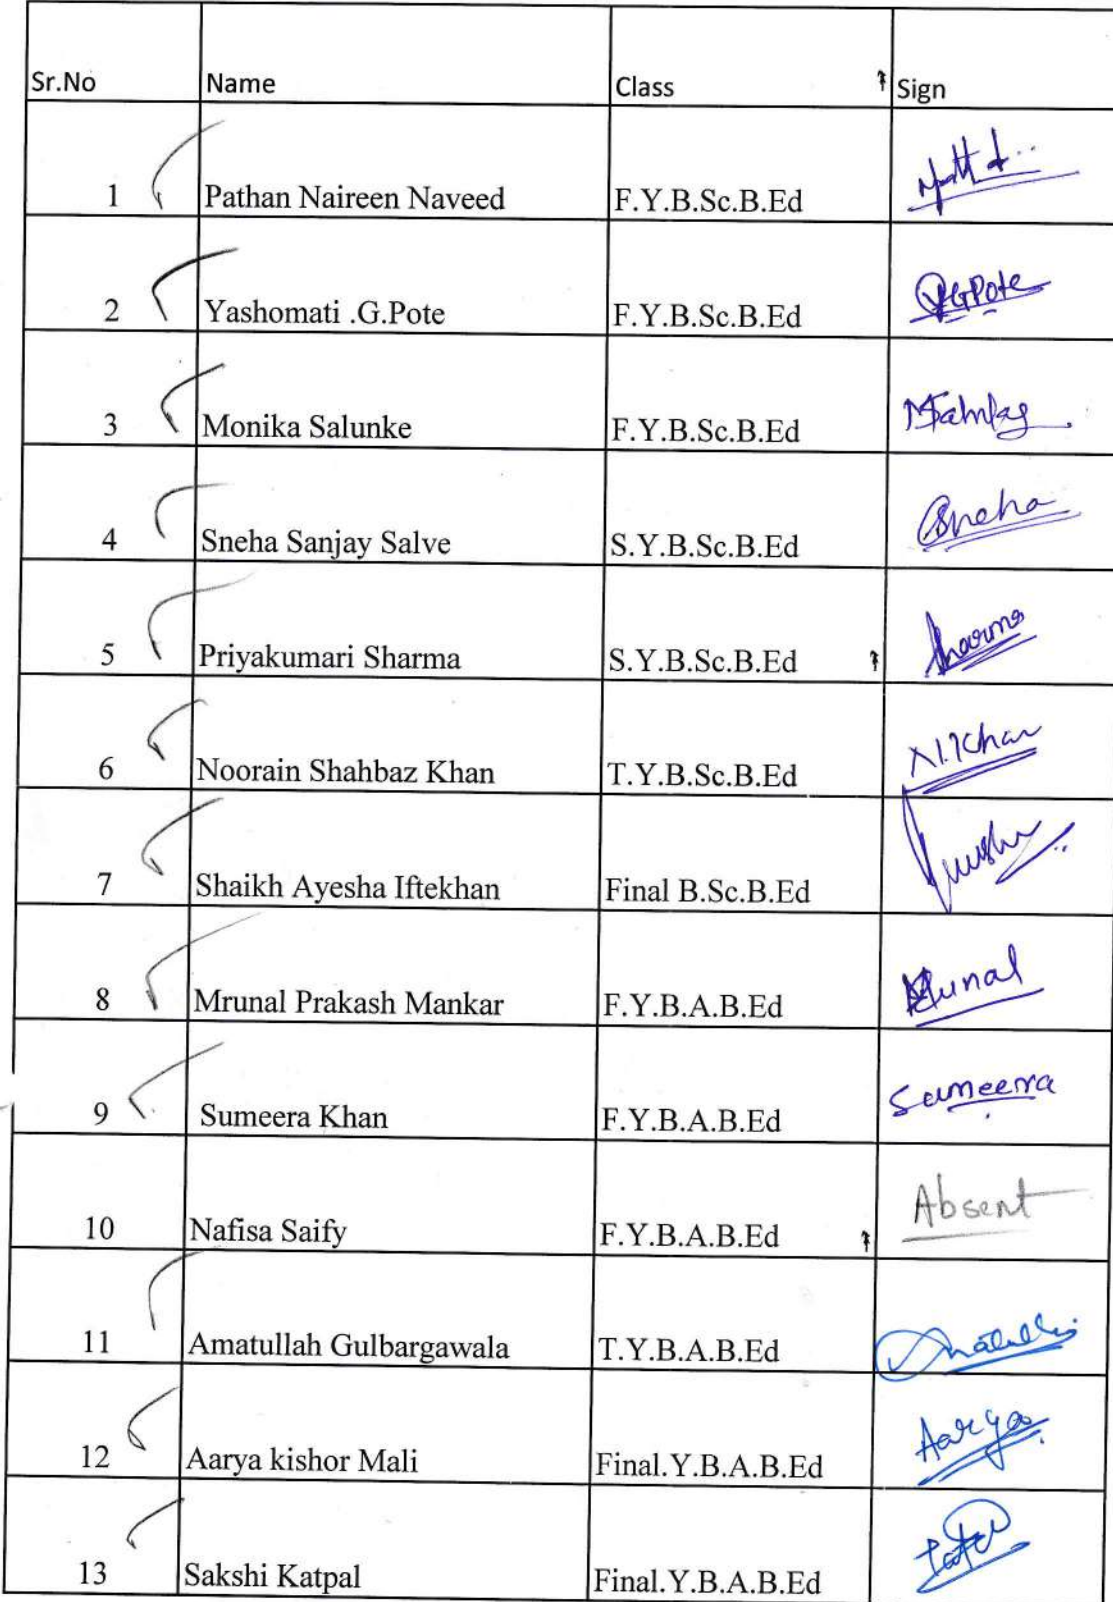 Sr.No Name Class Sign
1 Pathan Naireen Naveed F.Y.B.Sc.B.Ed
2 Yashomati .G.Pote F.Y.B.Sc.B.Ed YGPote
3 Monika Salunke F.Y.B.Sc.B.Ed
4 Sneha Sanjay Salve S.Y.B.Sc.B.Ed Sneha
5 Priyakumari Sharma S.Y.B.Sc.B.Ed Sharma
6 Noorain Shahbaz Khan T.Y.B.Sc.B.Ed N.Khan
7 Shaikh Ayesha Iftekhan Final B.Sc.B.Ed
8 Mrunal Prakash Mankar F.Y.B.A.B.Ed Mrunal
9 Sumeera Khan F.Y.B.A.B.Ed Sumeera
10 Nafisa Saify F.Y.B.A.B.Ed Absent
11 Amatullah Gulbargawala T.Y.B.A.B.Ed
12 Aarya kishor Mali Final.Y.B.A.B.Ed Aarya
13 Sakshi Katpal Final.Y.B.A.B.Ed